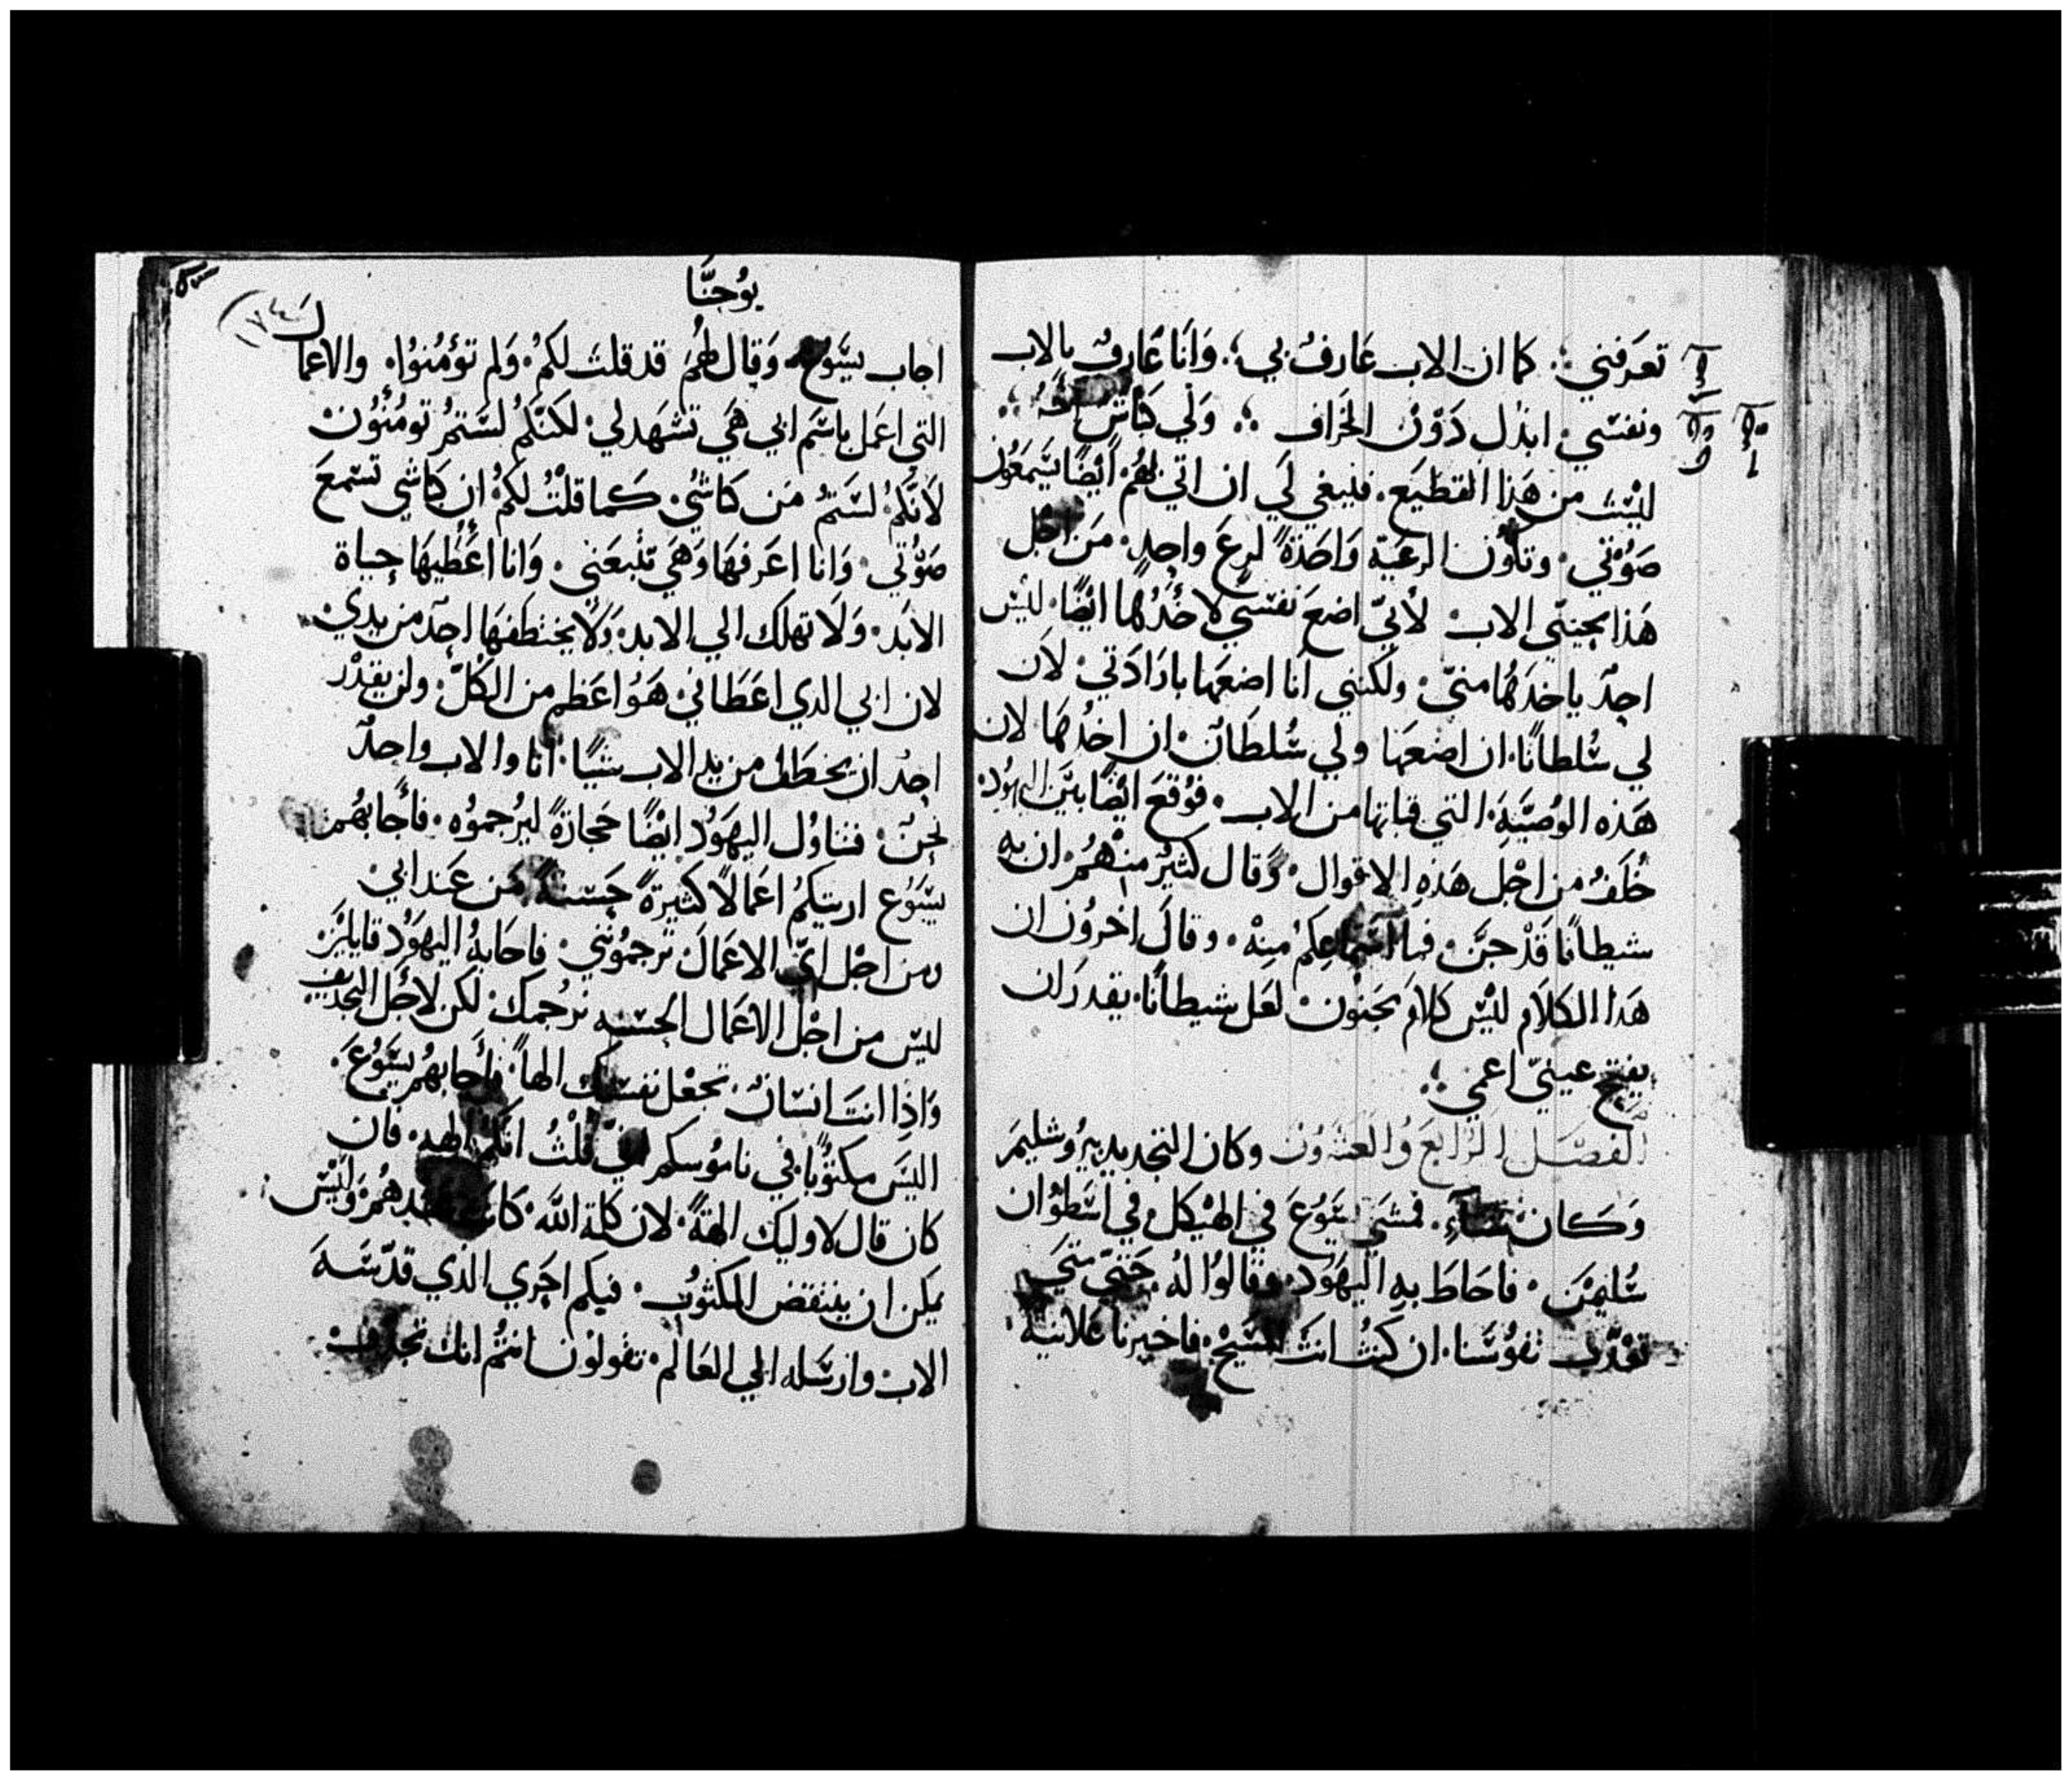 تعَرفني ؛ كما ان الاب عَارفٌ بي ؛ وَانَا عَارفٌ بالاب
ونفسّي ابذل دَوْن الخَراف ؛ وَلي كبَاش
ليْسْت من هَذا القطيَع . فينبغي لَي ان اتي بهُم ايْضًا يسّمعَون
صَوْتي . وتكون الرعَية وَاحَدَةً لرعَ واحدٍ . مَن اجْل
هَذا يحبنّي الاب لأنيّ اضعَ نفسّي لاخُذُها ايْضًا . ليْس
احدٌ ياخذَهَا منيّ . ولكنني انا اضعَها بارَادَتي . لان
لي سُلطانًا . ان اضعَها ولي سُلطَان . ان اخدُهَا لان
هَذه الوُصيَّة التي قبلتها من الاب . فوُقعَ ايْضًا بيَن اليهوُد
خُلفٌ من اجْل هَذهِ الاقوال . وَقال كثيْر منهُم . ان بهِ
شيطانًا قَدْ جنَّ . فما اسْتماعِكم منهْ . وقالَ اخروُن ان
هَذا الكلاَم ليْس كلامَ مجَنوْن لعَل شيطانًا . يقدرَ ان
يفتح عينيّ اعمي ؛
الفصَل الرَّابعَ وَالعشروُن وكان التجديد بيرُوشليمَ
وَكان شتاءٍ . فمشَي يسّوُعَ في الهيْكل في اسّطوْان
سُليمْن . فاحَاطَ بهِ اليهَوُد . وقالوُا لهُ . حَتيّ متَي
تعَذّب نفوُسّنا . ان كنتُ انتَ المسّيْح . فاخبرنا عَلانيةً
يوُحنَّا
اجاب يسّوُع وَقال لهُمَ قد قلتَ لكمُ . وَلم توُمنوُا . والاعَمال
التي اعَمل باسّم ابي هَي تشهَد لي . لكنّكمُ لسّتمُ تومُنوُن
لأنكمُ . لسّتمُ مَن كبَاشي . كما قلتُ لكمُ . ان كبَاشي تسّمعَ
صَوْتي . وَانا اعَرفهَا وَهَي تتْبعَني . وَانا اعَطيهَا حياة
الابَد . وَلاَ تهلك الي الابد . وَلاَ يختطفهَا احدٌ من يدي
لان ابي الدي اعَطَاني هَوُ اعَظم من الكلّ . ولن يقدْر
احدٌ ان يخطَف من يد الاب شيًا . انا والاب واحدٌ
نحن . فتناوُل اليهَوُد ايْضًا حجارةً ليرُجموُه . فأجَابهُم
يسّوُع اريتكمُ اعَمالاً كثيرةً حَسّنةً مَن عَند ابي
ومن اجْل ايّ الاعَمالَ ترجموُنني . فاجابهُ اليهَوُد قايليْن
ليْس من اجْل الاعَمال الحسّنه نرجُمك . لكن لاجْل التجديف
وَاذا انتَ انسّان . تجعْل نفسّك الهاً . فأجابهُم يسّوُعَ
اليسَ مكتوُبًا في ناموُسكم اني قلْتُ انكمُ الهه . فان
كان قال لاوليك الهةً . لان كلمة الله . كانت عندهُم . وَليْس
يمكن ان ينتقض المكتوُب . فيكم احَري الذي قدّسّهَ
الاب وارسّله الي العَالم . تقولوْن انتمُ انك تجدّف